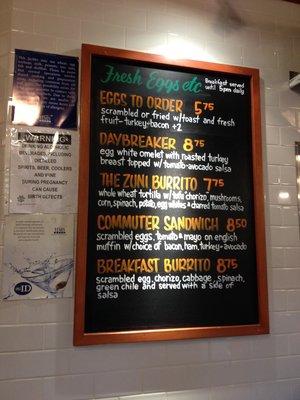 Fresh Eggs etc
Breakfast served
until 5pm daily
EGGS TO ORDER 5.75
scrambled or fried w/toast and fresh
fruit-turkey+bacon +2
DAYBREAKER 8.75
egg white omelet with roasted turkey
breast topped w/tomato-avocado salsa
THE ZUNI BURRITO 7.75
whole wheat tortilla w/tofu chorizo, mushrooms,
corn, spinach, potato, egg whites & charred tomato salsa
COMMUTER SANDWICH 8.50
scrambled eggs, tomato & mayo on english
muffin w/choice of bacon, ham, turkey+avocado
BREAKFAST BURRITO 8.75
scrambled egg, chorizo, cabbage, spinach,
green chile and served with a side of
salsa
WARNING
DRINKING ALCOHOLIC
BEVERAGES, INCLUDING
DISTILLED
SPIRITS, BEER, COOLERS
AND WINE
DURING PREGNANCY
CAN CAUSE
BIRTH DEFECTS
ID